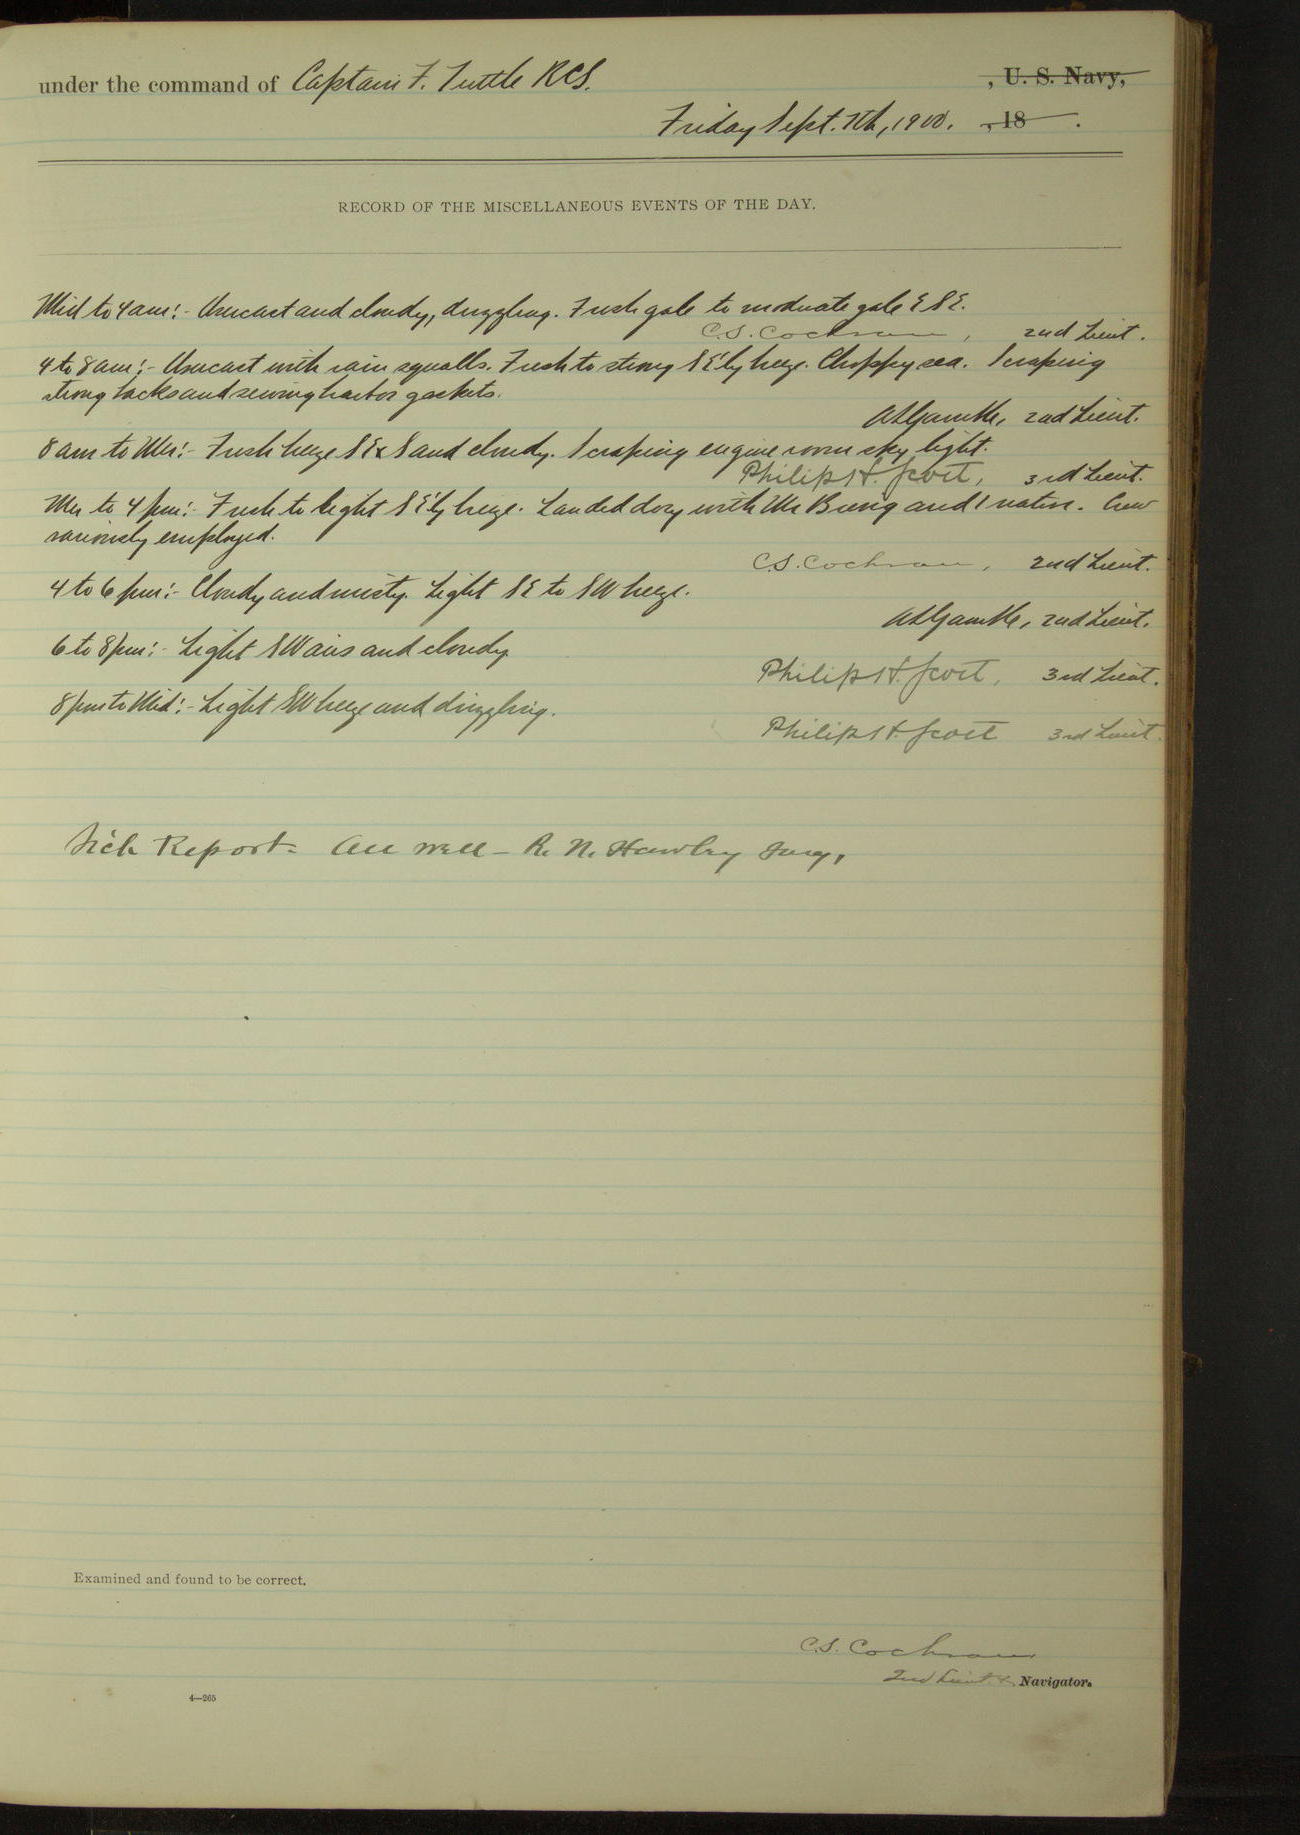 under the command of Captain F. Tuttle RCS. , U. S. Navy,
Friday Sept. 7th, 1900. , 18 .
RECORD OF THE MISCELLANEOUS EVENTS OF THE DAY.
Mid to 4 am:- Overcast and cloudy, drizzling. Fresh gale to moderate gale ESE.
C.S. Cochran, 2nd Lieut.
4 to 8 am:- Overcast with rain squalls. Fresh to strong SE'ly breeze. Choppy sea. Scraping
strong backs and sewing harbor gaskets.
A L Gamble, 2nd Lieut.
8 am to Mer:- Fresh breeze SExS and cloudy. Scraping engine room sky light.
Philip H. Scott, 3rd Lieut.
Mer to 4 pm:- Fresh to light SE'ly breeze. Landed dory with Mr and 1 native. Crew
variously employed.
C.S. Cochran, 2nd Lieut.
4 to 6 pm:- Cloudy and misty. Light SE to SW breeze.
A L Gamble, 2nd Lieut.
6 to 8 pm:- Light SW airs and cloudy.
Philip H. Scott, 3rd Lieut.
8 pm to Mid:- Light SW breeze and drizzling.
Philip H. Scott 3rd Lieut.
Sick Report- All well- R. N. Hawley Surg.
Examined and found to be correct.
C.S. Cochran
2nd Lieut. & Navigator.
4—265